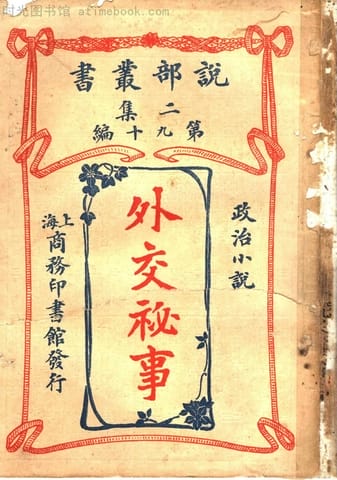 时光图书馆 - atimebook.com
說部叢書
二集
第九十編
政治小說
外交祕事
上海商務印書館發行